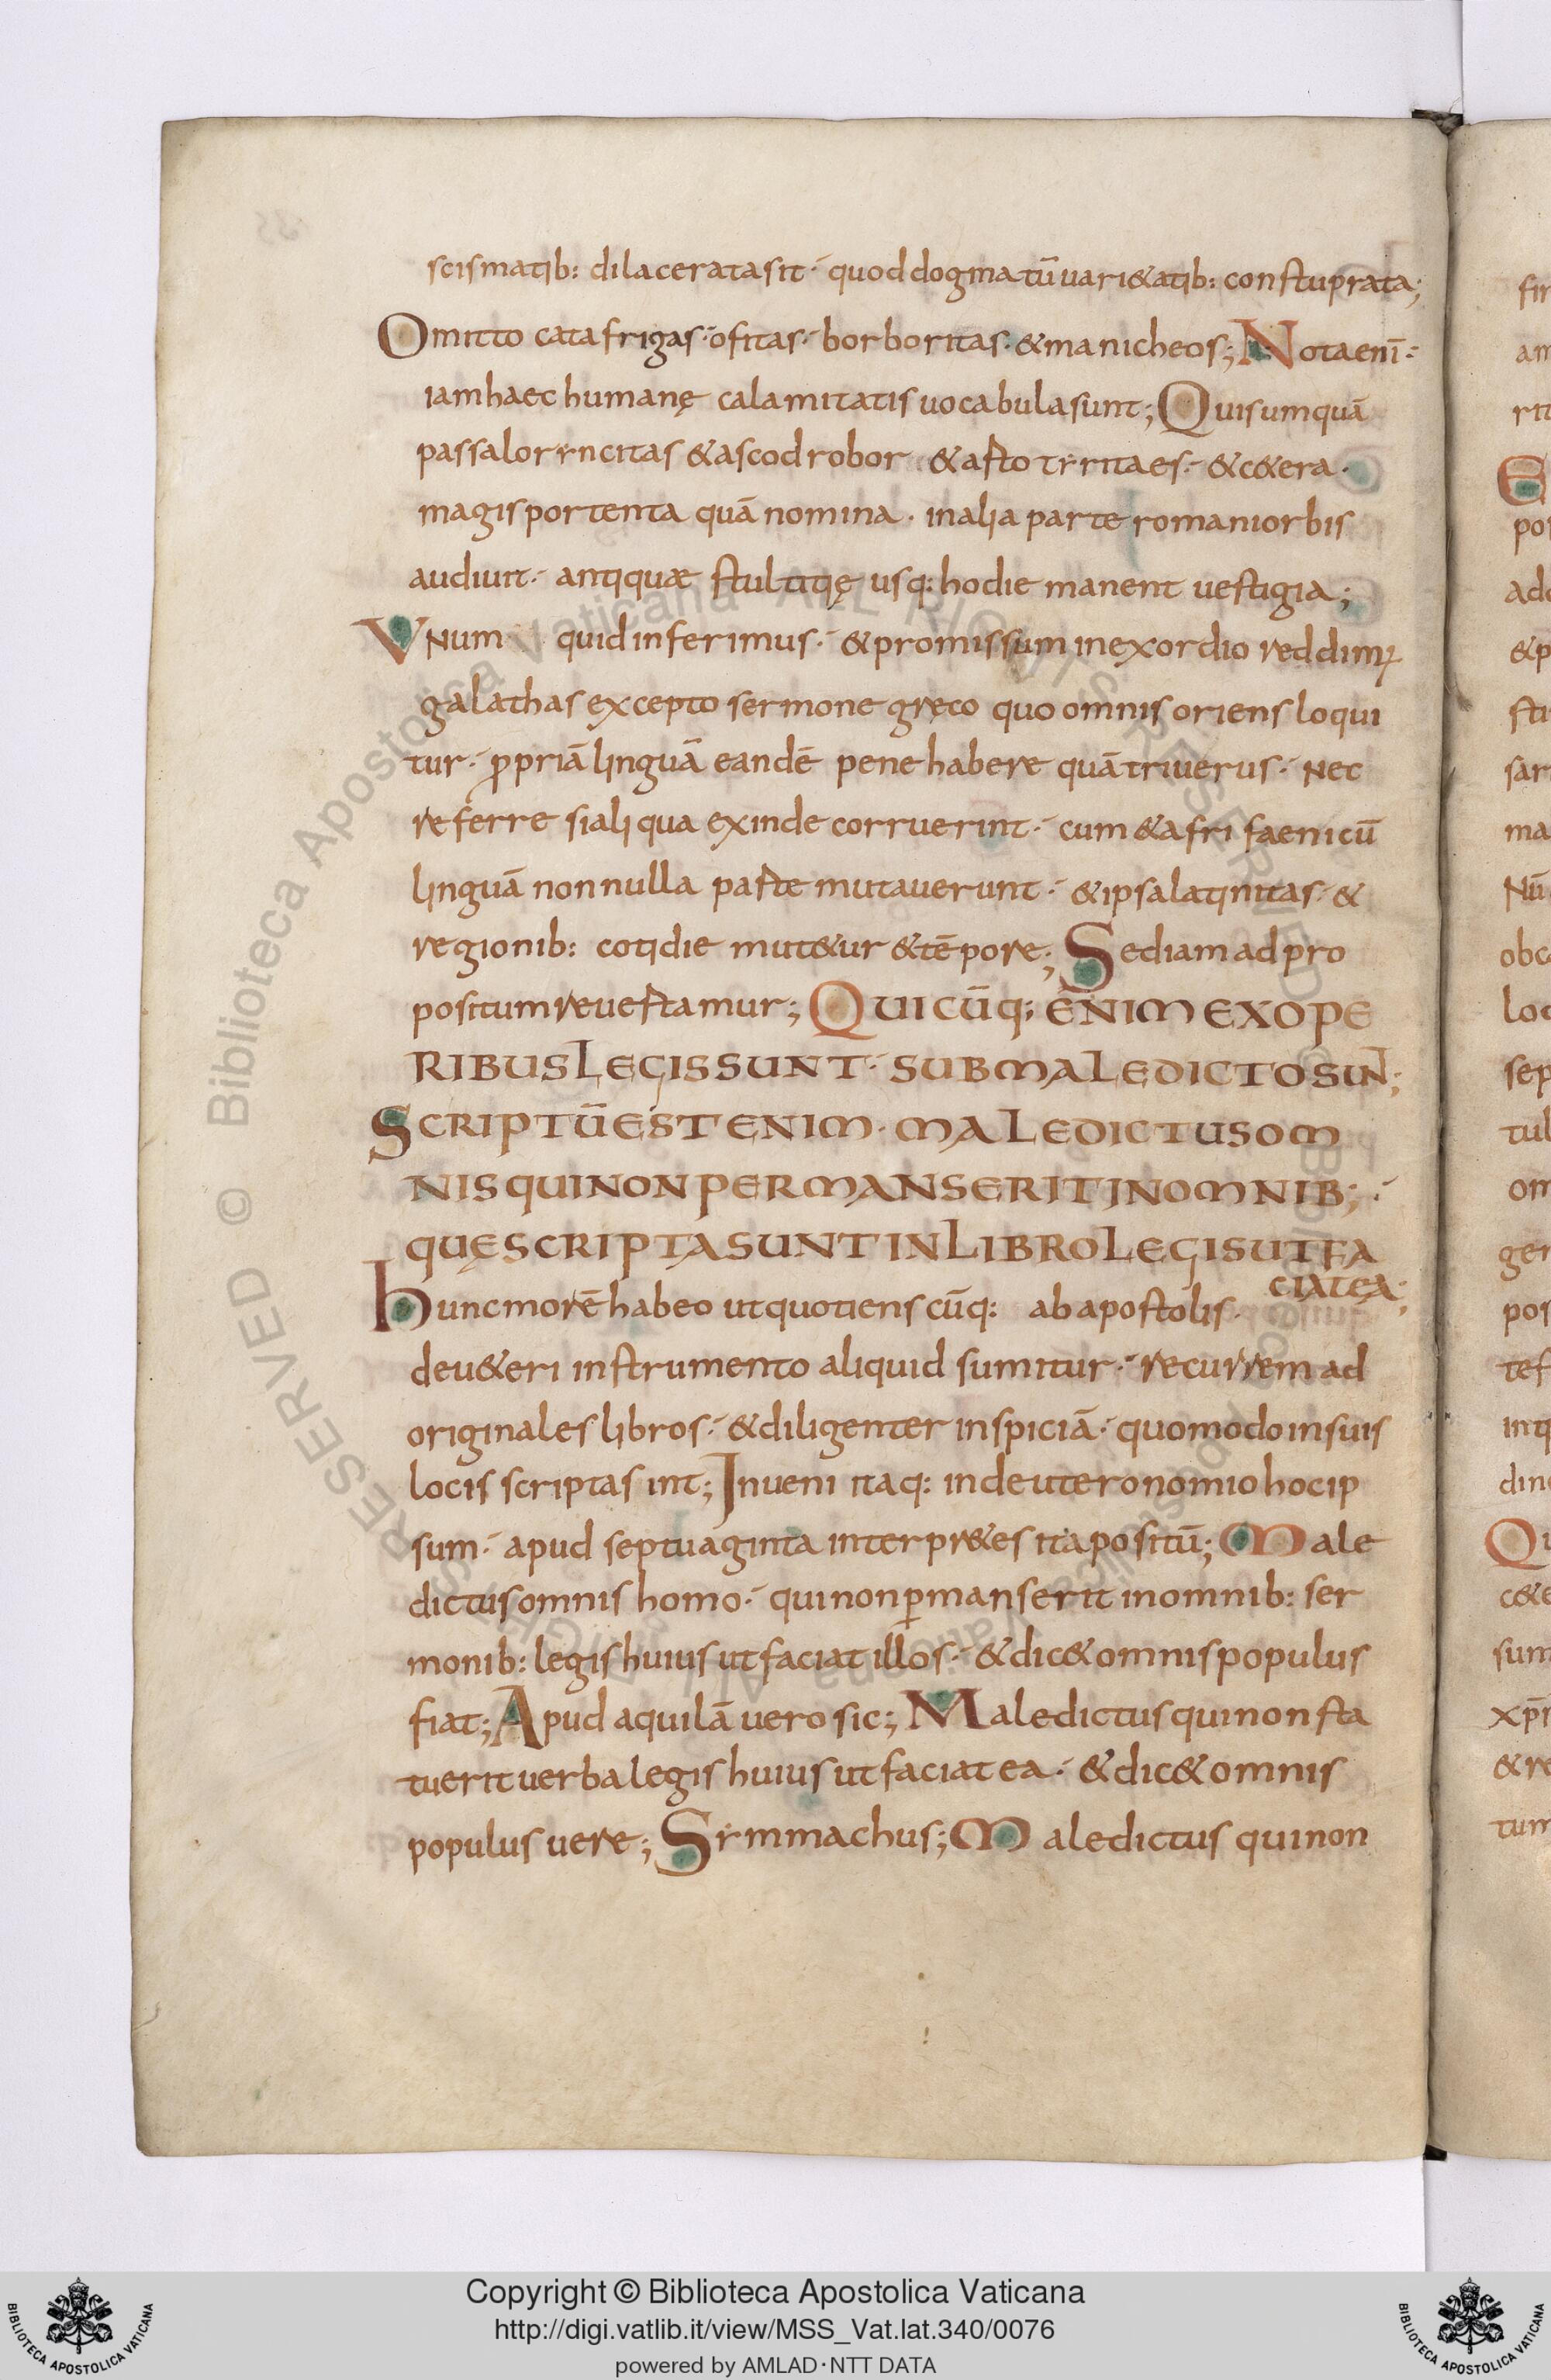 scismatib: dilacerata sit · quod dogmatū uari&atib: constuprata;
Omitto catafrigas · ofitas · borboritas · & manicheos; Nota enī
iam haec humanę calamitatis uocabula sunt; Quis umquā
passalorrncitas & ascodrobor & astotyritaes · & c&era ·
magis portenta quā nomina · in alia parte romani orbis
audiuit · antiquæ stultitię usq: hodie manent uestigia;
Vnum quid inferimus · & promissum in exordio reddim;
galathas excepto sermone gręco quo omnis oriens loqui
tur · ꝓpriā linguā eandē pene habere quā triuerus · Nec
referre si aliqua exinde corruerint · cum & afri faenicū
linguā nonnulla parte mutauerunt · & ipsa latinitas · &
regionib: cotidie mut&ur & tēpore; Sed iam ad pro
positum reuertamur; QUICŪQ: ENIM EX OPE
RIBUS LEGIS SUNT · SUB MALEDICTO SUNT;
SCRIPTŪ EST ENIM · MALEDICTUS OM
NIS QUI NON PERMANSERIT IN OMNIB; ·
QUĘ SCRIPTA SUNT IN LIBRO LEGIS UT FA
CIAT EA;
hunc morē habeo ut quotienscūq: ab apostolis ·
de u&eri instrumento aliquid sumitur · recurrem ad
originales libros · & diligenter inspiciā · quomodo in suis
locis scripta sint; Inueni itaq: in deuteronomio hoc ip
sum · apud septuaginta interpr&es ita positū; Male
dictus omnis homo · qui non ꝑmanserit in omnib: ser
monib: legis huius ut faciat illos · & dic& omnis populus
fiat; Apud aquilā uero sic; Maledictus qui non sta
tuerit uerba legis huius ut faciat ea · & dic& omnis
populus uere; Symmachus; Maledictus qui non
Copyright © Biblioteca Apostolica Vaticana
http://digi.vatlib.it/view/MSS_Vat.lat.340/0076
powered by AMLAD·NTT DATA
BIBLIOTECA APOSTOLICA VATICANA
BIBLIOTECA APOSTOLICA VATICANA